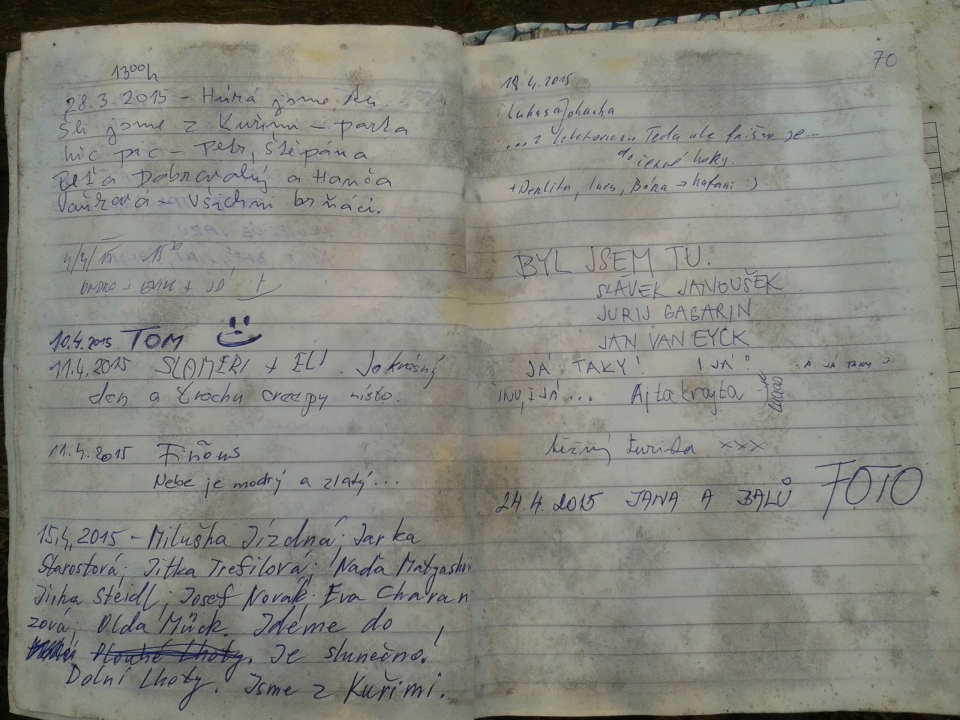 13⁰⁰h
28.3.2015 - Hurá jsme tu.
Šli jsme z Kuřimi - parta
hic pic - Petr, Štěpána
Beťa Dobrovolný a Hanča
Vaňková - všichni brňáci.
4/4/15
10.4.2015 TOM
11.4.2015 SLAMERI + ELI. Jo krásný
den a trochu creepy místo.
11.4.2015 Fiňous
Nebe je modrý a zlatý...
15.4.2015 - Miluška Jízdná; Jarka
Starostová; Jitka Trefilová; Naďa Matyaskov
Jirka Steidl; Josef Novák; Eva Charan
zová; Olda Mück. Jdeme do
Dlouhé Lhoty. Je slunečno!
Dolní Lhoty. Jsme z Kuřimi.
70
18.4.2015
... z Teda ale je...
do lhoty.
+ Bára → hafani :)
BYL JSEM TU.
SLÁVEK JANOUŠEK
JURIJ GAGARIN
JAN VAN EYCK
JÁ TAKY! I JÁ! A JÁ TAKY?
INU, I JÁ... Ajtakrajta
běžný turista xxx
24.4.2015 JANA A BALŮ FOTO